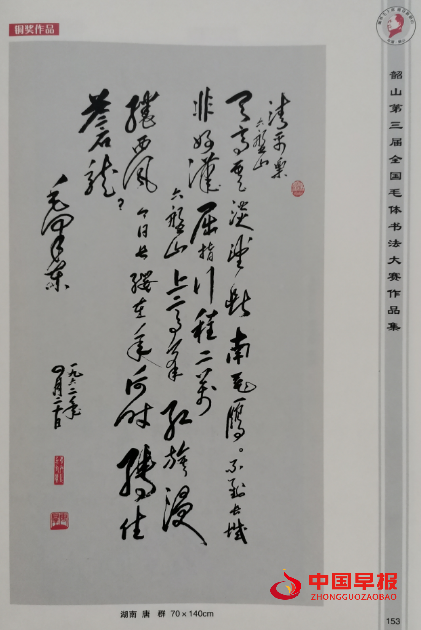 铜奖作品
韶山第三届全国毛体书法大赛作品集
清平樂
六盤山
天高雲淡望斷南飛雁。不到長城
非好漢屈指行程二萬
六盤山上高峯红旗漫
捲西風今日長缨在手何时縛住
蒼龍?
毛泽东
一九六二年
四月二十日
湖南 唐 群 70×140cm
中国早报
ZHONGGUOZAOBAO
153